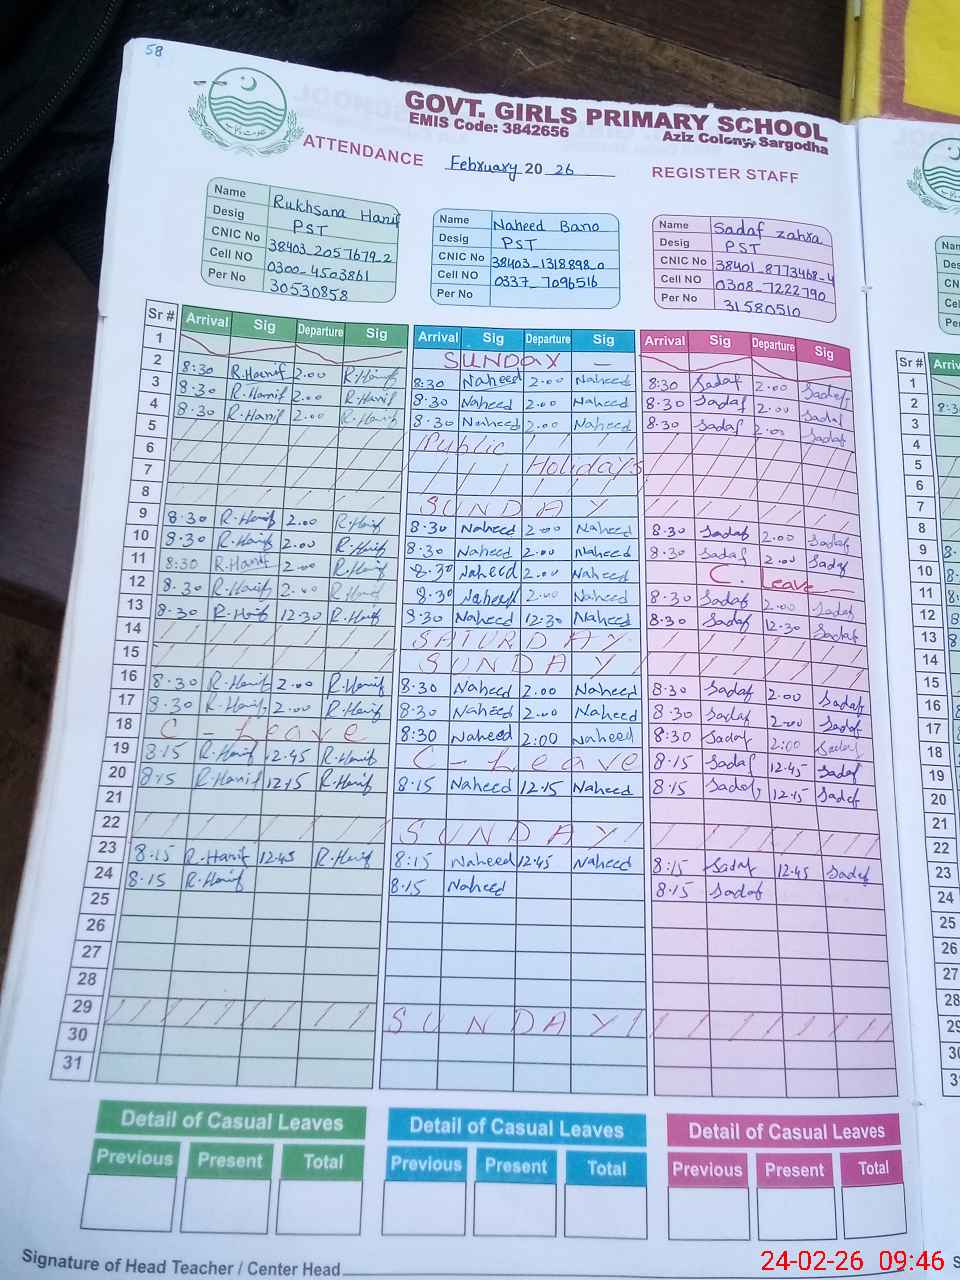 58
GOVT. GIRLS PRIMARY SCHOOL
EMIS Code: 3842656 Aziz Colony, Sargodha
ATTENDANCE February 20 26 REGISTER STAFF
Name Rukhsana Hanif
Desig PST
CNIC No 38403_2057679_2
Cell NO 0300_4503861
Per No 30530858
Name Naheed Bano
Desig PST
CNIC No 38403_1318898_0
Cell NO 0337_7096516
Per No
Name Sadaf zahra
Desig PST
CNIC No 38401_8773468-4
Cell NO 0308_7222790
Per No 31580510
Sr # Arrival Sig Departure Sig Arrival Sig Departure Sig Arrival Sig Departure Sig
1 SUNDAY —
2 8:30 R.Hanif 2.00 R.Hanif 8:30 Naheed 2.00 Naheed 8:30 Sadaf 2.00 Sadaf
3 8.30 R.Hanif 2.00 R.Hanif 8.30 Naheed 2.00 Naheed 8.30 Sadaf 2.00 Sadaf
4 8.30 R.Hanif 2.00 R.Hanif 8.30 Naheed 2.00 Naheed 8.30 Sadaf 2.00 Sadaf
5 Public
6 Holidays
7
8 SUNDAY
9 8.30 R.Hanif 2.00 R.Hanif 8.30 Naheed 2.00 Naheed 8.30 Sadaf 2.00 Sadaf
10 8.30 R.Hanif 2.00 R.Hanif 8.30 Naheed 2.00 Naheed 8.30 Sadaf 2.00 Sadaf
11 8:30 R.Hanif 2.00 R.Hanif 8.30 Naheed 2.00 Naheed C. Leave
12 8.30 R.Hanif 2.00 R.Hanif 8.30 Naheed 2.00 Naheed 8.30 Sadaf 2.00 Sadaf
13 8.30 R.Hanif 12.30 R.Hanif 8.30 Naheed 12.30 Naheed 8.30 Sadaf 12.30 Sadaf
14 SATURDAY
15 SUNDAY
16 8.30 R.Hanif 2.00 R.Hanif 8.30 Naheed 2.00 Naheed 8.30 Sadaf 2.00 Sadaf
17 8.30 R.Hanif 2.00 R.Hanif 8.30 Naheed 2.00 Naheed 8.30 Sadaf 2.00 Sadaf
18 C - Leave 8:30 Naheed 2:00 Naheed 8:30 Sadaf 2:00 Sadaf
19 8.15 R.Hanif 12.45 R.Hanif C - Leave 8.15 Sadaf 12.45 Sadaf
20 8.15 R.Hanif 12.15 R.Hanif 8.15 Naheed 12.15 Naheed 8.15 Sadaf 12.15 Sadaf
21
22 SUNDAY
23 8.15 R.Hanif 12.45 R.Hanif 8:15 Naheed 12.45 Naheed 8.15 Sadaf 12.45 Sadaf
24 8.15 R.Hanif 8.15 Naheed 8.15 Sadaf
25
26
27
28
29 SUNDAY
30
31
Detail of Casual Leaves Detail of Casual Leaves Detail of Casual Leaves
Previous Present Total Previous Present Total Previous Present Total
Signature of Head Teacher / Center Head
24-02-26 09:46